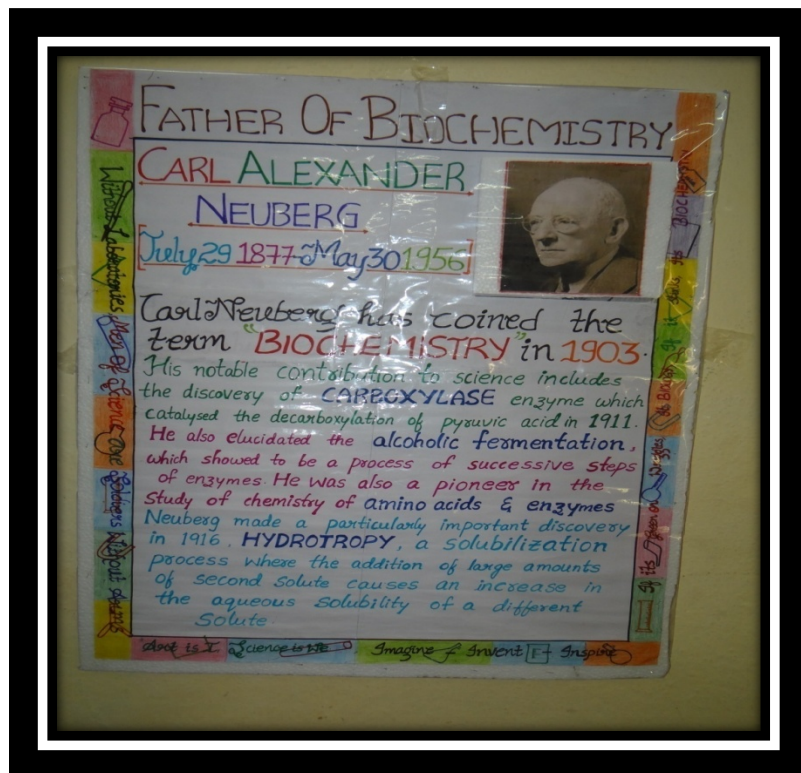 FATHER OF BIOCHEMISTRY
CARL ALEXANDER
NEUBERG
[July 29 1877-May 30 1956]
Carl Neuberg has coined the
term "BIOCHEMISTRY" in 1903.
His notable contribution to science includes
the discovery of CARBOXYLASE enzyme which
catalysed the decarboxylation of pyruvic acid in 1911.
He also elucidated the alcoholic fermentation,
which showed to be a process of successive steps
of enzymes. He was also a pioneer in the
study of chemistry of amino acids & enzymes
Neuberg made a particularly important discovery
in 1916. HYDROTROPY, a solubilization
process where the addition of large amounts
of second solute causes an increase in
the aqueous solubility of a different
solute
Without Laboratories Men of Science are Soldiers Without Arms
Art is I Science is We Imagine Invent Inspire
If its Green or If it its BIOCHEMISTRY